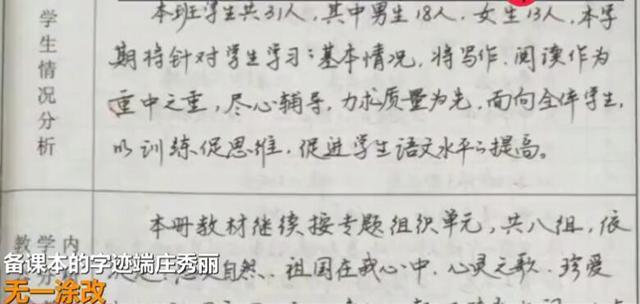 学生情况分析
本班学生共31人,其中男生18人,女生13人,本学
期将针对学生学习:基本情况,将写作、阅读作为
重中之重,尽心辅导,力求质量为先,面向全体学生,
以训练促思维,促进学生语文水平的提高。
教学内
本册教材继续按专题组织单元,共八组,依
自然、祖国在我心中、心灵之歌、珍爱
备课本的字迹端庄秀丽
无一涂改